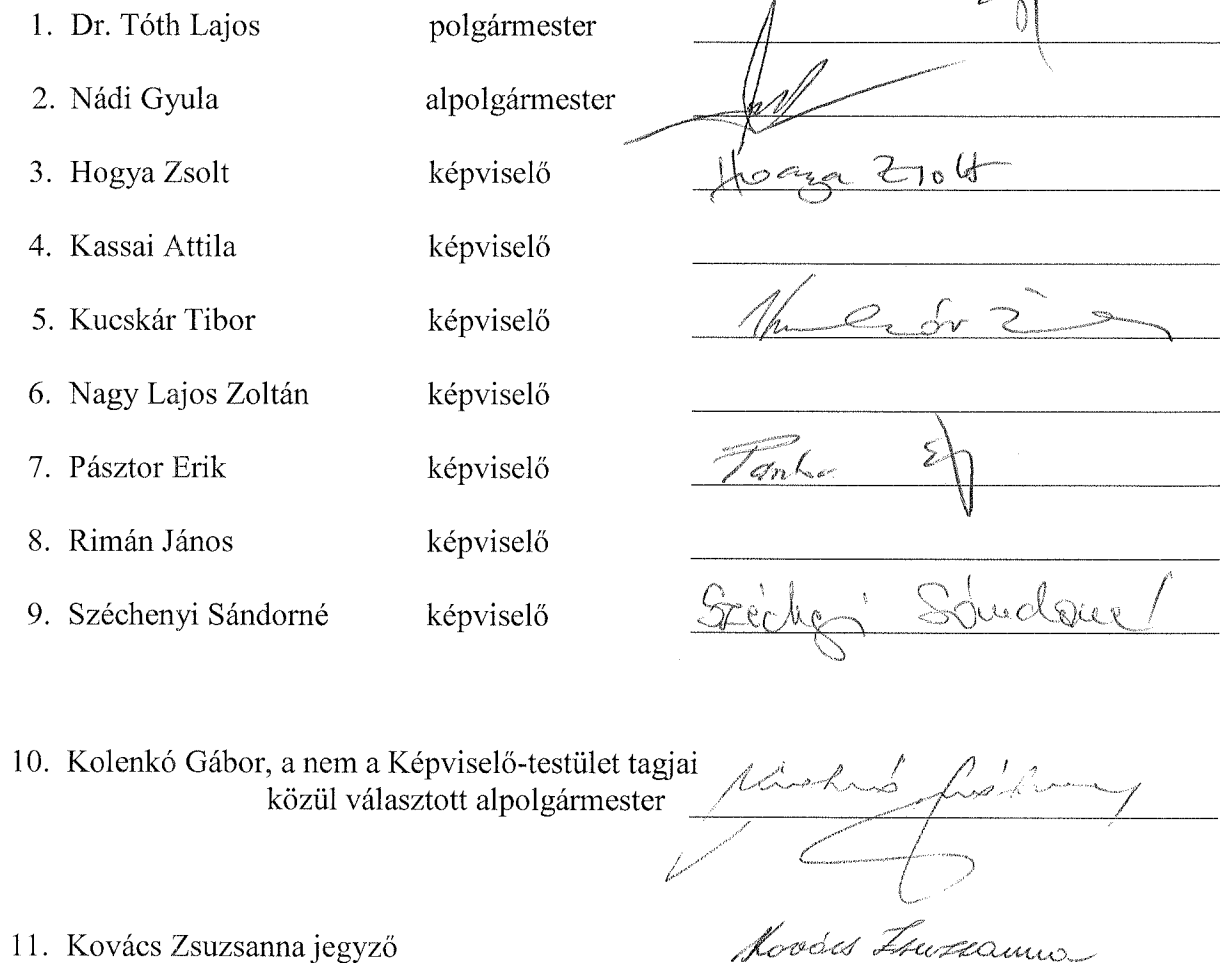 1. Dr. Tóth Lajos polgármester
2. Nádi Gyula alpolgármester
3. Hogya Zsolt képviselő Hogya Zsolt
4. Kassai Attila képviselő
5. Kucskár Tibor képviselő
6. Nagy Lajos Zoltán képviselő
7. Pásztor Erik képviselő
8. Rimán János képviselő
9. Széchenyi Sándorné képviselő Széchenyi Sándorné
10. Kolenkó Gábor, a nem a Képviselő-testület tagjai
közül választott alpolgármester
11. Kovács Zsuzsanna jegyző Kovács Zsuzsanna